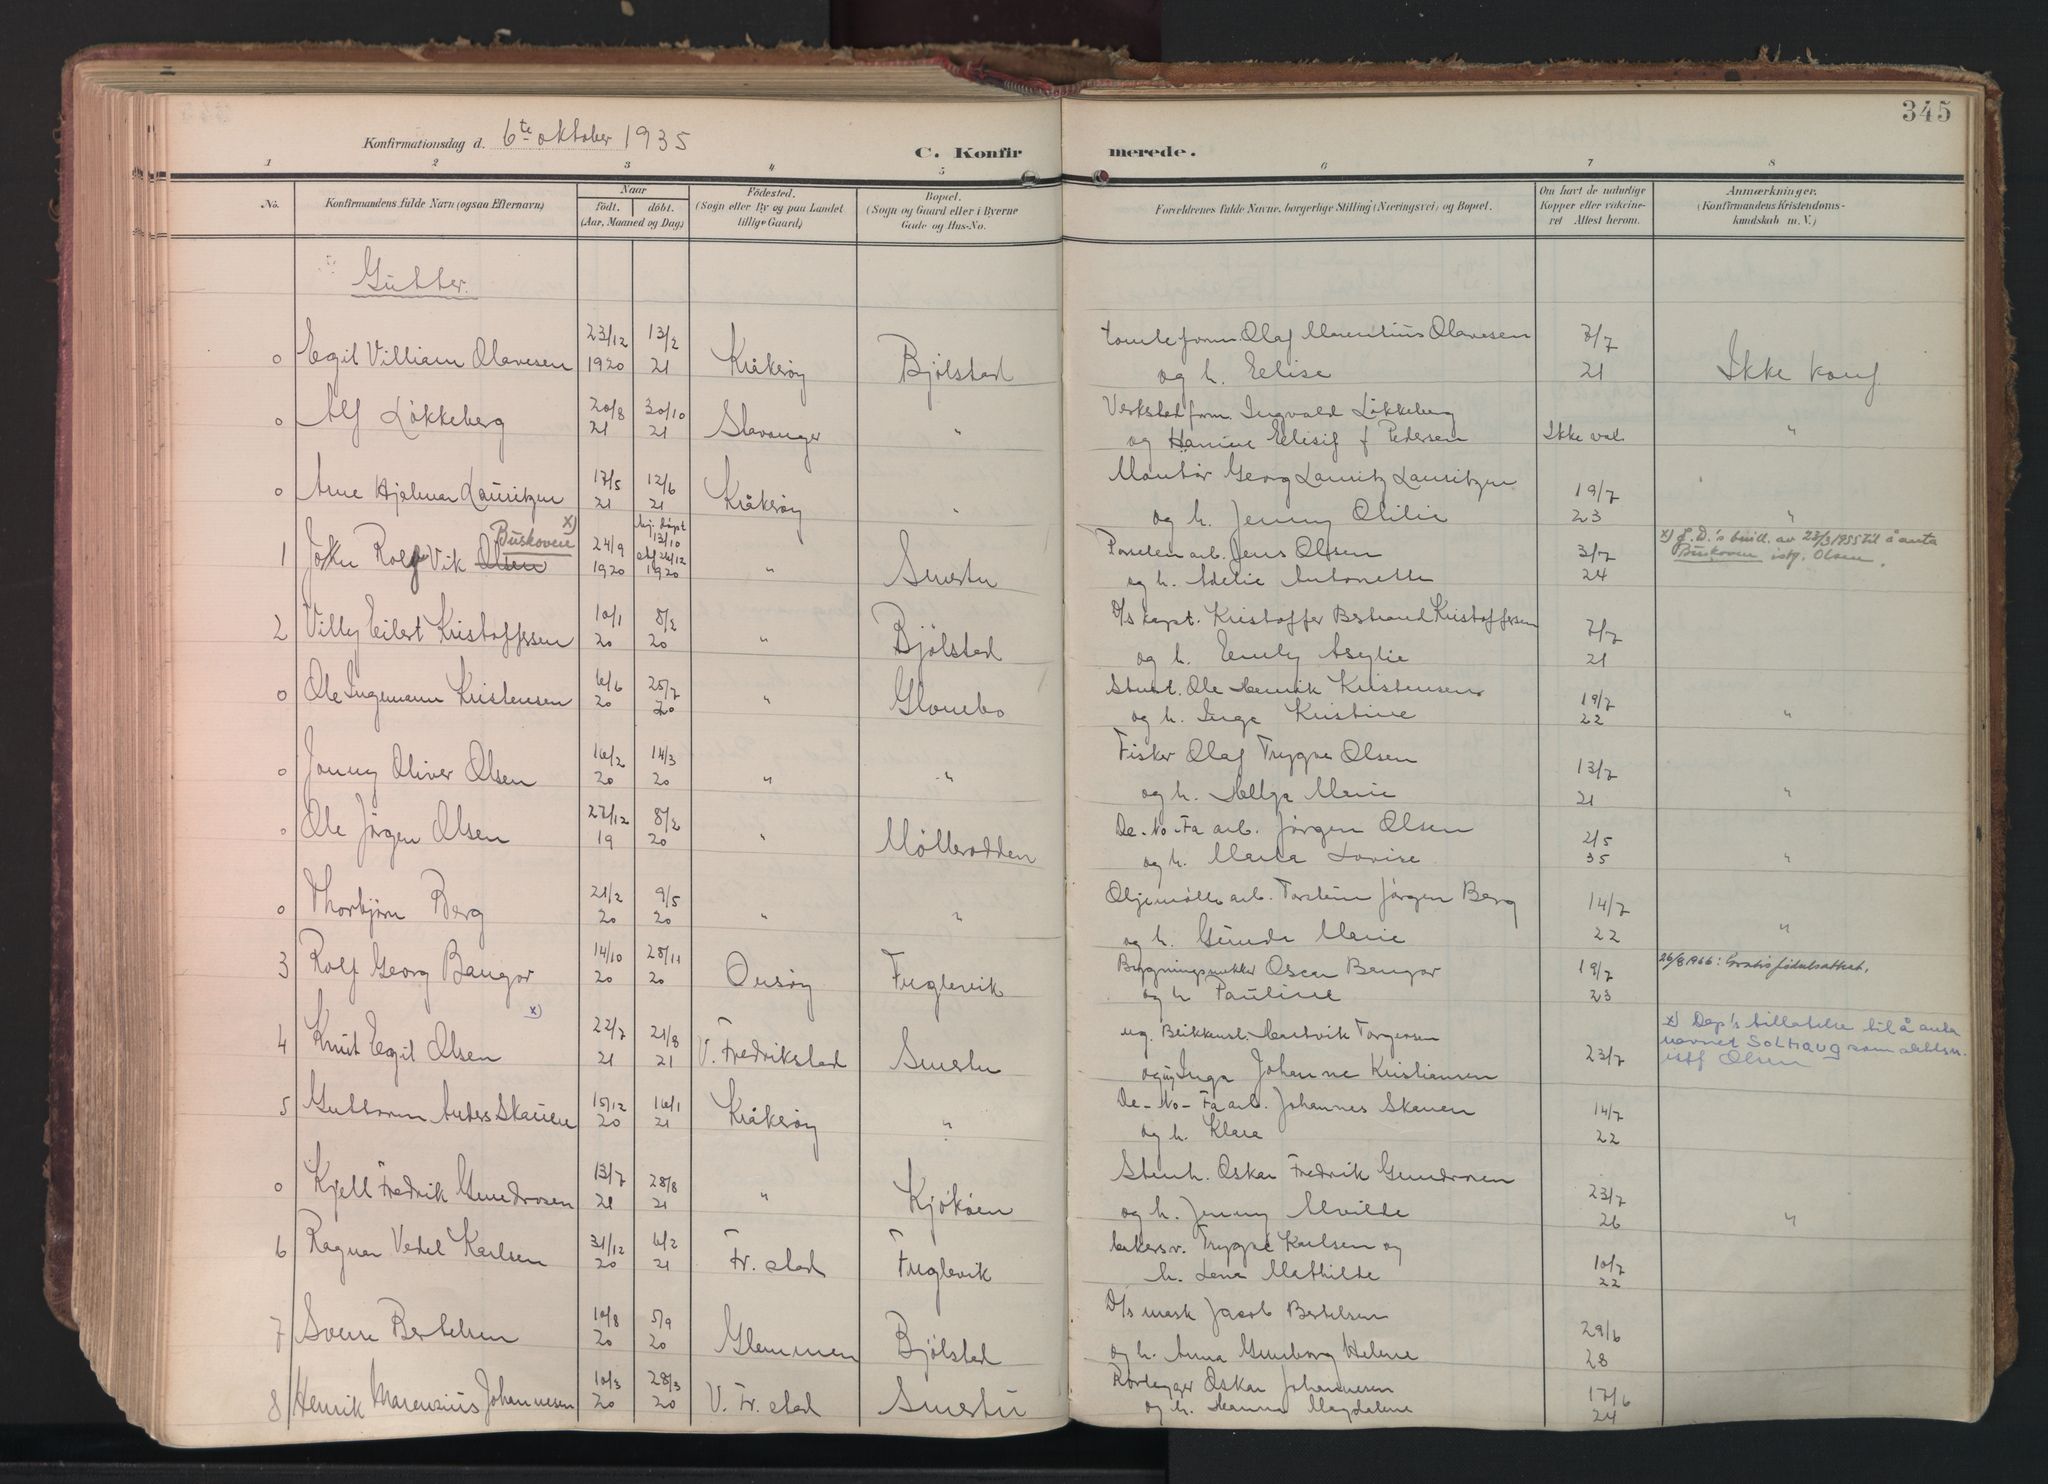 345
Konfirmationsdag d. 6te oktober 1935
C. Konfirmerede.
1 2 3 4 5 6 7 8
No.
Konfirmandens fulde Navn (ogsaa Efternavn)
Naar
födt. döbt.
(Aar, Maaned og Dag)
Födested.
(Sogn eller By og paa Landet tillige Gaard)
Bopæl.
(Sogn og Gaard eller i Byerne Gade og Hus-No.
Forældrenes fulde Navne, borgerlige Stilling (Næringsvei) og Bopæl.
Om havt de naturlige Kopper eller vaccineret Attest herom.
Anmærkninger.
(Konfirmandens Kristendomskundskab m. V.)
Gutter.
0 Egil Villiam Olavesen 23/12 1920 13/2 21 Kråkerøy Bjølstad Olaf Marentius Olavesen 21 Ikke konf.
og h. Elise
0 Alf Løkkeberg 20/8 21 30/10 21 Stavanger " Verkstedform. Ingvald Løkkeberg Ikke vak. "
og Hanine Elisif f Pedersen
0 Arne Hjalmar Lauritzen 17/5 21 12/6 21 Kråkerøy " Montør Georg Lauritz Lauritzen 19/7 23 "
og h. Jenny Otilie
1 Rolf Vik Olsen Buskoven x) 24/9 1920 hj. døpt 13/10 1920 " Smertu arb. Jens Olsen 3/7 24 x) J.D.'s bevill. av 23/3 1955 til å anta Buskoven istf. Olsen.
og h. Adelie Antonette
2 Villy Eilert Kristoffersen 10/1 20 8/2 20 " Bjølstad D/s kapt. Kristoffer Bertrand Kristoffersen 7/7 21
og h. Emily
0 Ole Ingemann Kristensen 6/6 20 25/7 20 " Glombo Ole Henrik Kristensen 19/7 22 "
og h. Inga Kristine
0 Jonny Oliver Olsen 16/2 20 14/3 20 " " Fisker Olaf Trygve Olsen 13/7 21 "
og h. Helga Marie
0 Ole Jørgen Olsen 19 8/2 20 " Møllerodden De-No-Fa arb. Jørgen Olsen 2/5 35 "
og h. Marta Lovise
0 Thorbjørn Berg 21/2 20 9/5 20 " " Oljemølle arb. Torstein Jørgen Berg 14/7 22 "
og h. Gunda Marie
3 Rolf Georg Bangor 14/10 20 28/11 20 Onsøy Fuglevik Bygningssnekker Oscar Bangor 19/7 23 26/8 1966: Gratis fødselsattest.
og h Pauline
4 Knut Egil Olsen x) 22/7 21 21/8 21 V. Fredrikstad Smertu ug. Blikkensl. Hartvik Torgersen 23/7 x) Dep's tillatelse til å anta navnet Solhaug som slektsn. istf Olsen
og ug Inga Johanne Kristiansen
5 Guttorm Anders Skauen 15/12 20 16/1 21 Kråkerøy " De-No-Fa arb. Johannes Skauen 14/7 22
og h. Klara
0 Kjell Fredrik Gundrosen 13/7 21 28/8 21 " Kjøkøen Stenh. Oskar Fredrik Gundrosen 23/7 26 "
og h. Jenny Alvilde
6 Ragnar Vedel Karlsen 31/12 20 6/2 21 Fr. stad Fuglevik Trygve Karlsen og 10/7 22
h. Lena Mathilde
7 Svere Bertelsen 10/8 20 5/9 20 Glemmen Bjølstad D/s mask Jacob Bertelsen 29/6 28
og h. Anna Gunborg Helene
8 Henrik Marenzius Johannesen 10/3 20 28/3 20 V. Fr. stad Smertu Rørlegger Oskar Johannesen 17/6 24
og h. Hanna Magdalene